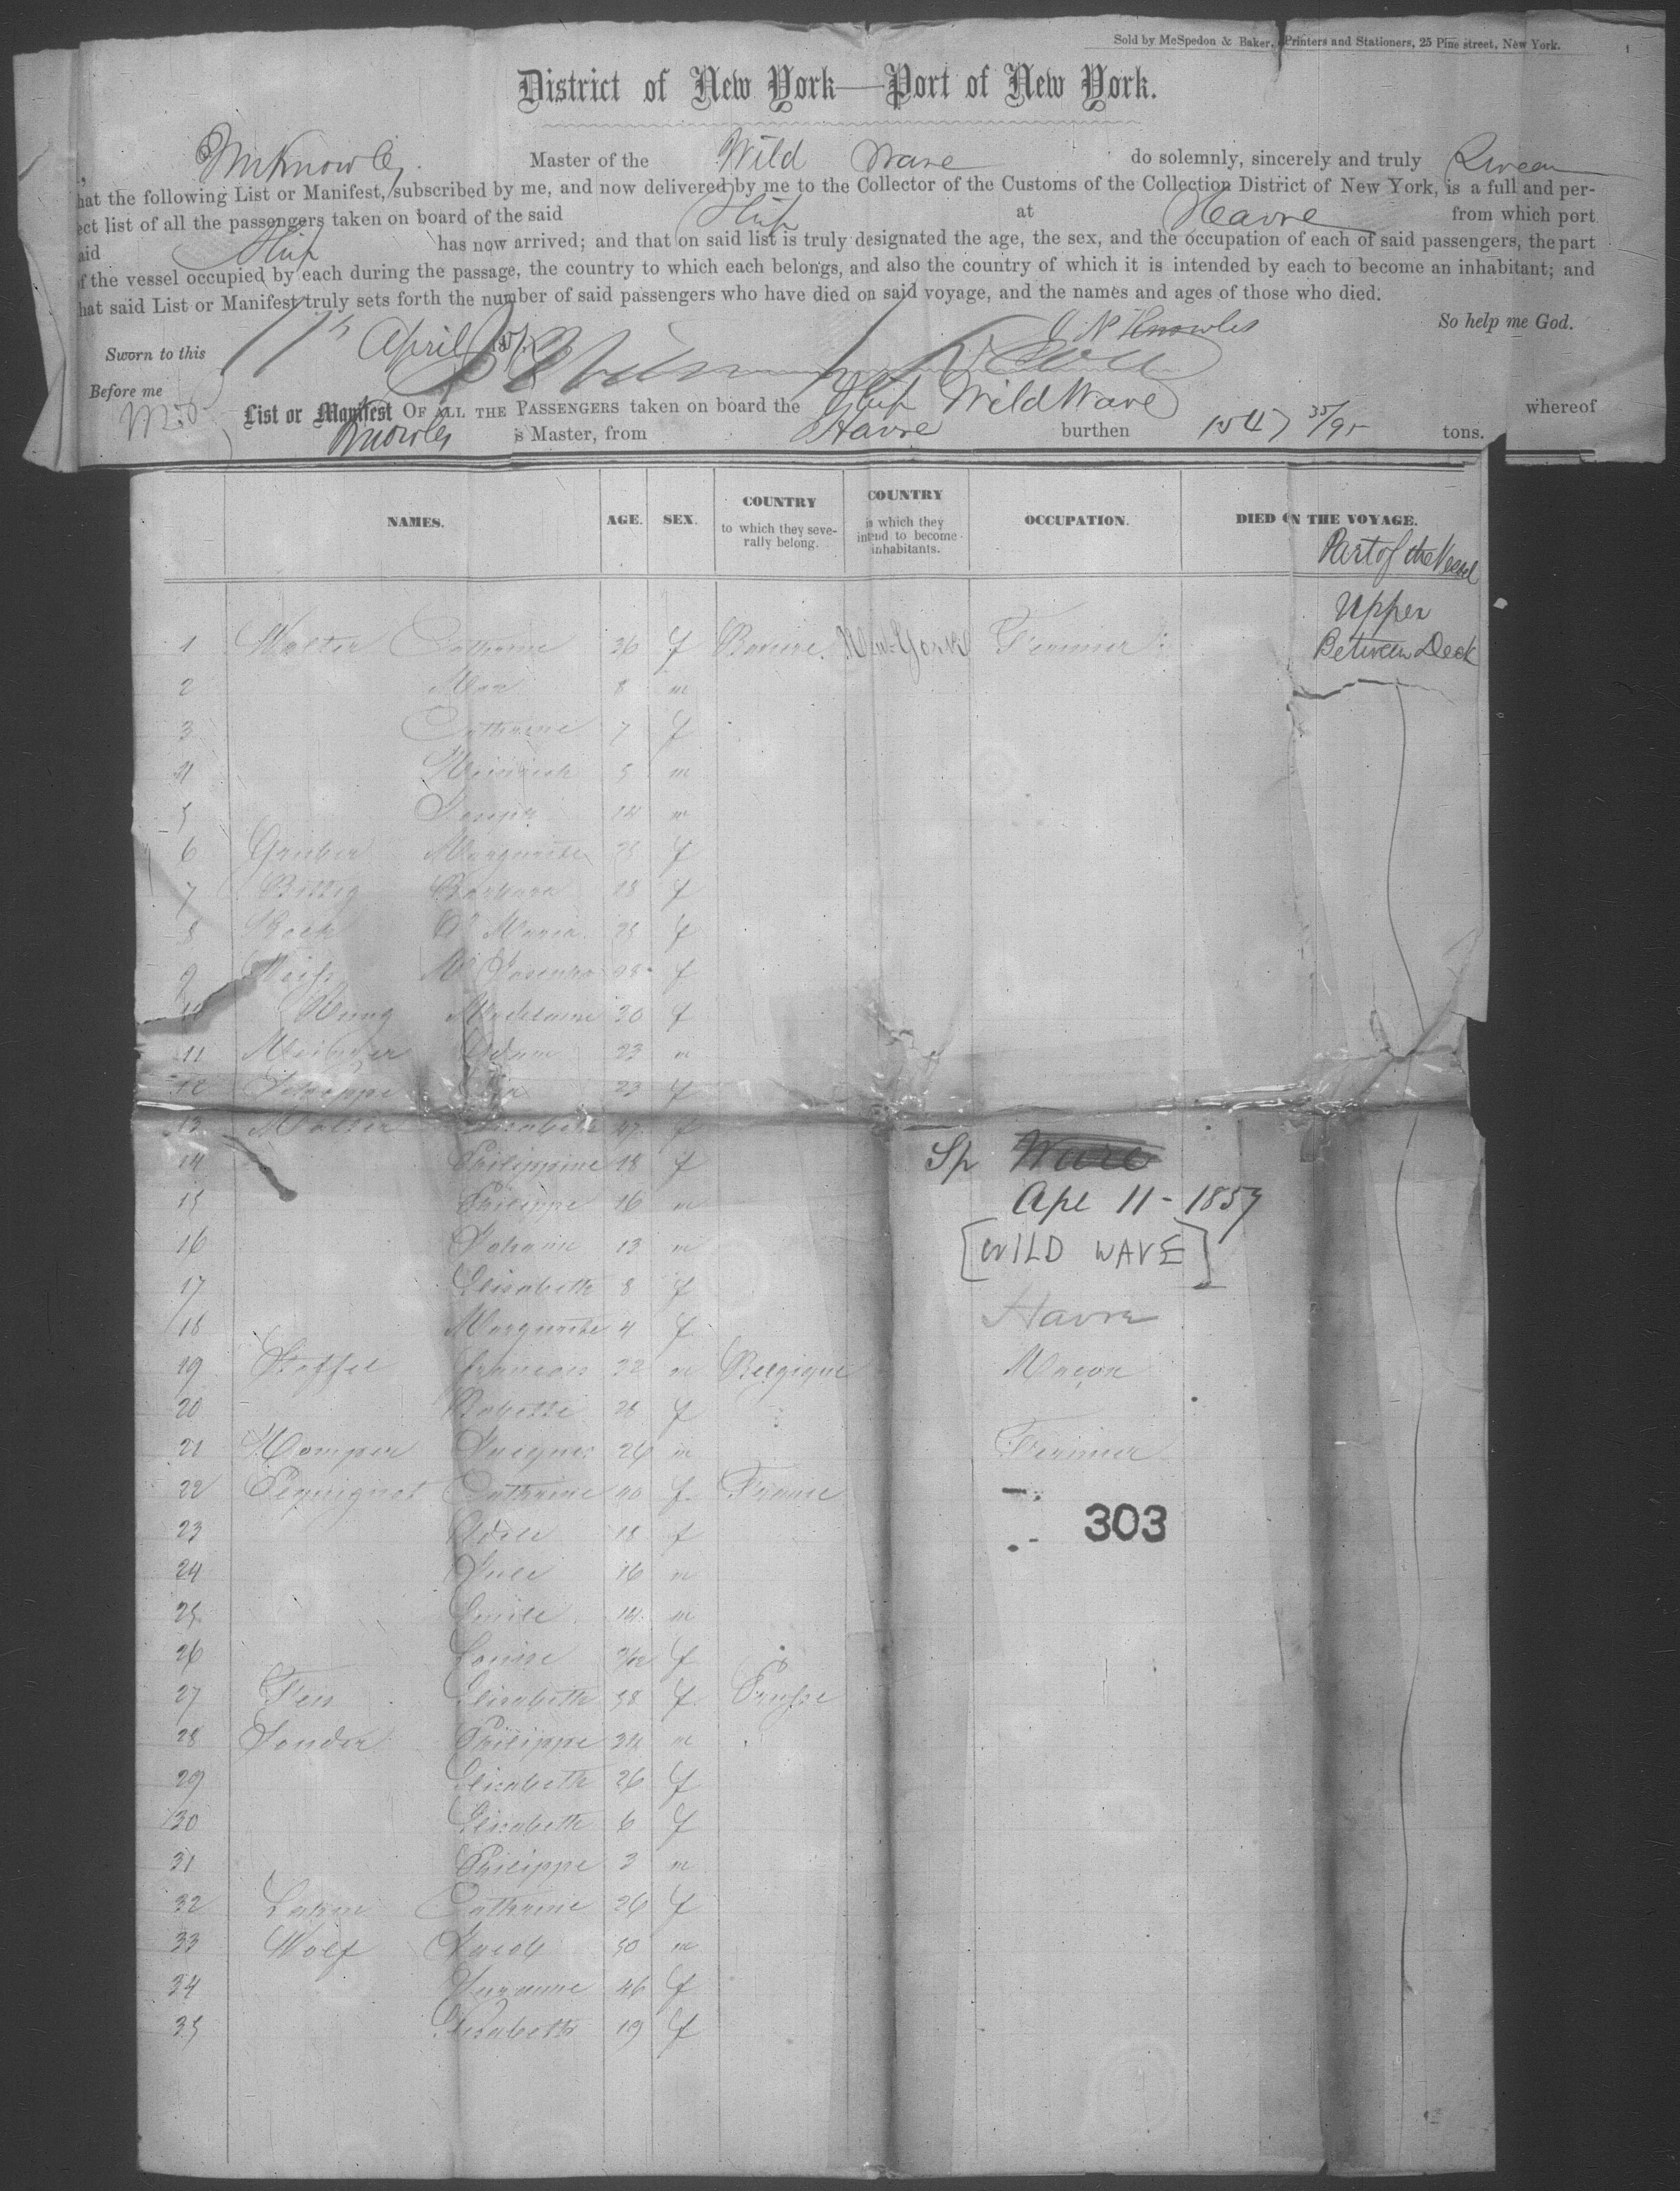 Sold by McSpedon & Baker, Printers and Stationers, 25 Pine street, New York.
District of New York—Port of New York.
Knowles Master of the Wild Wave do solemnly, sincerely and truly Swear
hat the following List or Manifest, subscribed by me, and now delivered by me to the Collector of the Customs of the Collection District of New York, is a full and per-
ect list of all the passengers taken on board of the said Ship at Havre from which port
aid Ship has now arrived; and that on said list is truly designated the age, the sex, and the occupation of each of said passengers, the part
f the vessel occupied by each during the passage, the country to which each belongs, and also the country of which it is intended by each to become an inhabitant; and
hat said List or Manifest truly sets forth the number of said passengers who have died on said voyage, and the names and ages of those who died.
So help me God.
Knowles
Sworn to this 11th April 1857
Before me
List or Manifest OF ALL THE PASSENGERS taken on board the Ship Wild Wave whereof
Knowles is Master, from Havre burthen 1547 35/95 tons.
NAMES. AGE. SEX. COUNTRY to which they severally belong. COUNTRY in which they intend to become inhabitants. OCCUPATION. DIED ON THE VOYAGE.
Part of the Vessel
Upper
Between Deck
1 Walter Catharine 36 f Baviere New-York Fermier
2 8 m
3 Catharine 7 f
4 Heinrich 5 m
5 14 m
6 Gruber Marguerite 25 f
7 Bittig Barbara 28 f
8 Koch Maria 25 f
9 28 f
10 Madelaine 20 f
11 Adam 23 m
12 23 f
13 Elisabeth 47 f
14 Philippine 18 f
15 Philippe 16 m
16 Johann 13 m
17 Elisabeth 8 f
18 Marguerite 4 f
19 Stoffel Francois 22 m Belgique Maçon
20 Babette 28 f
21 Jacques 26 m Fermier
22 Pequignot Catharine 40 f France
23 Adele 18 f
24 Jule 16 m
25 Emile 14 m
26 Louise f
27 Elisabeth 58 f Prusse
28 Sonder Philippe 34 m
29 Elisabeth 26 f
30 Elisabeth 6 f
31 Philippe 3 m
32 Catharine 26 f
33 Wolf Jacob 50 m
34 46 f
35 Elisabeth 19 f
Sp
Apl 11 - 1857
[WILD WAVE]
Havre
303